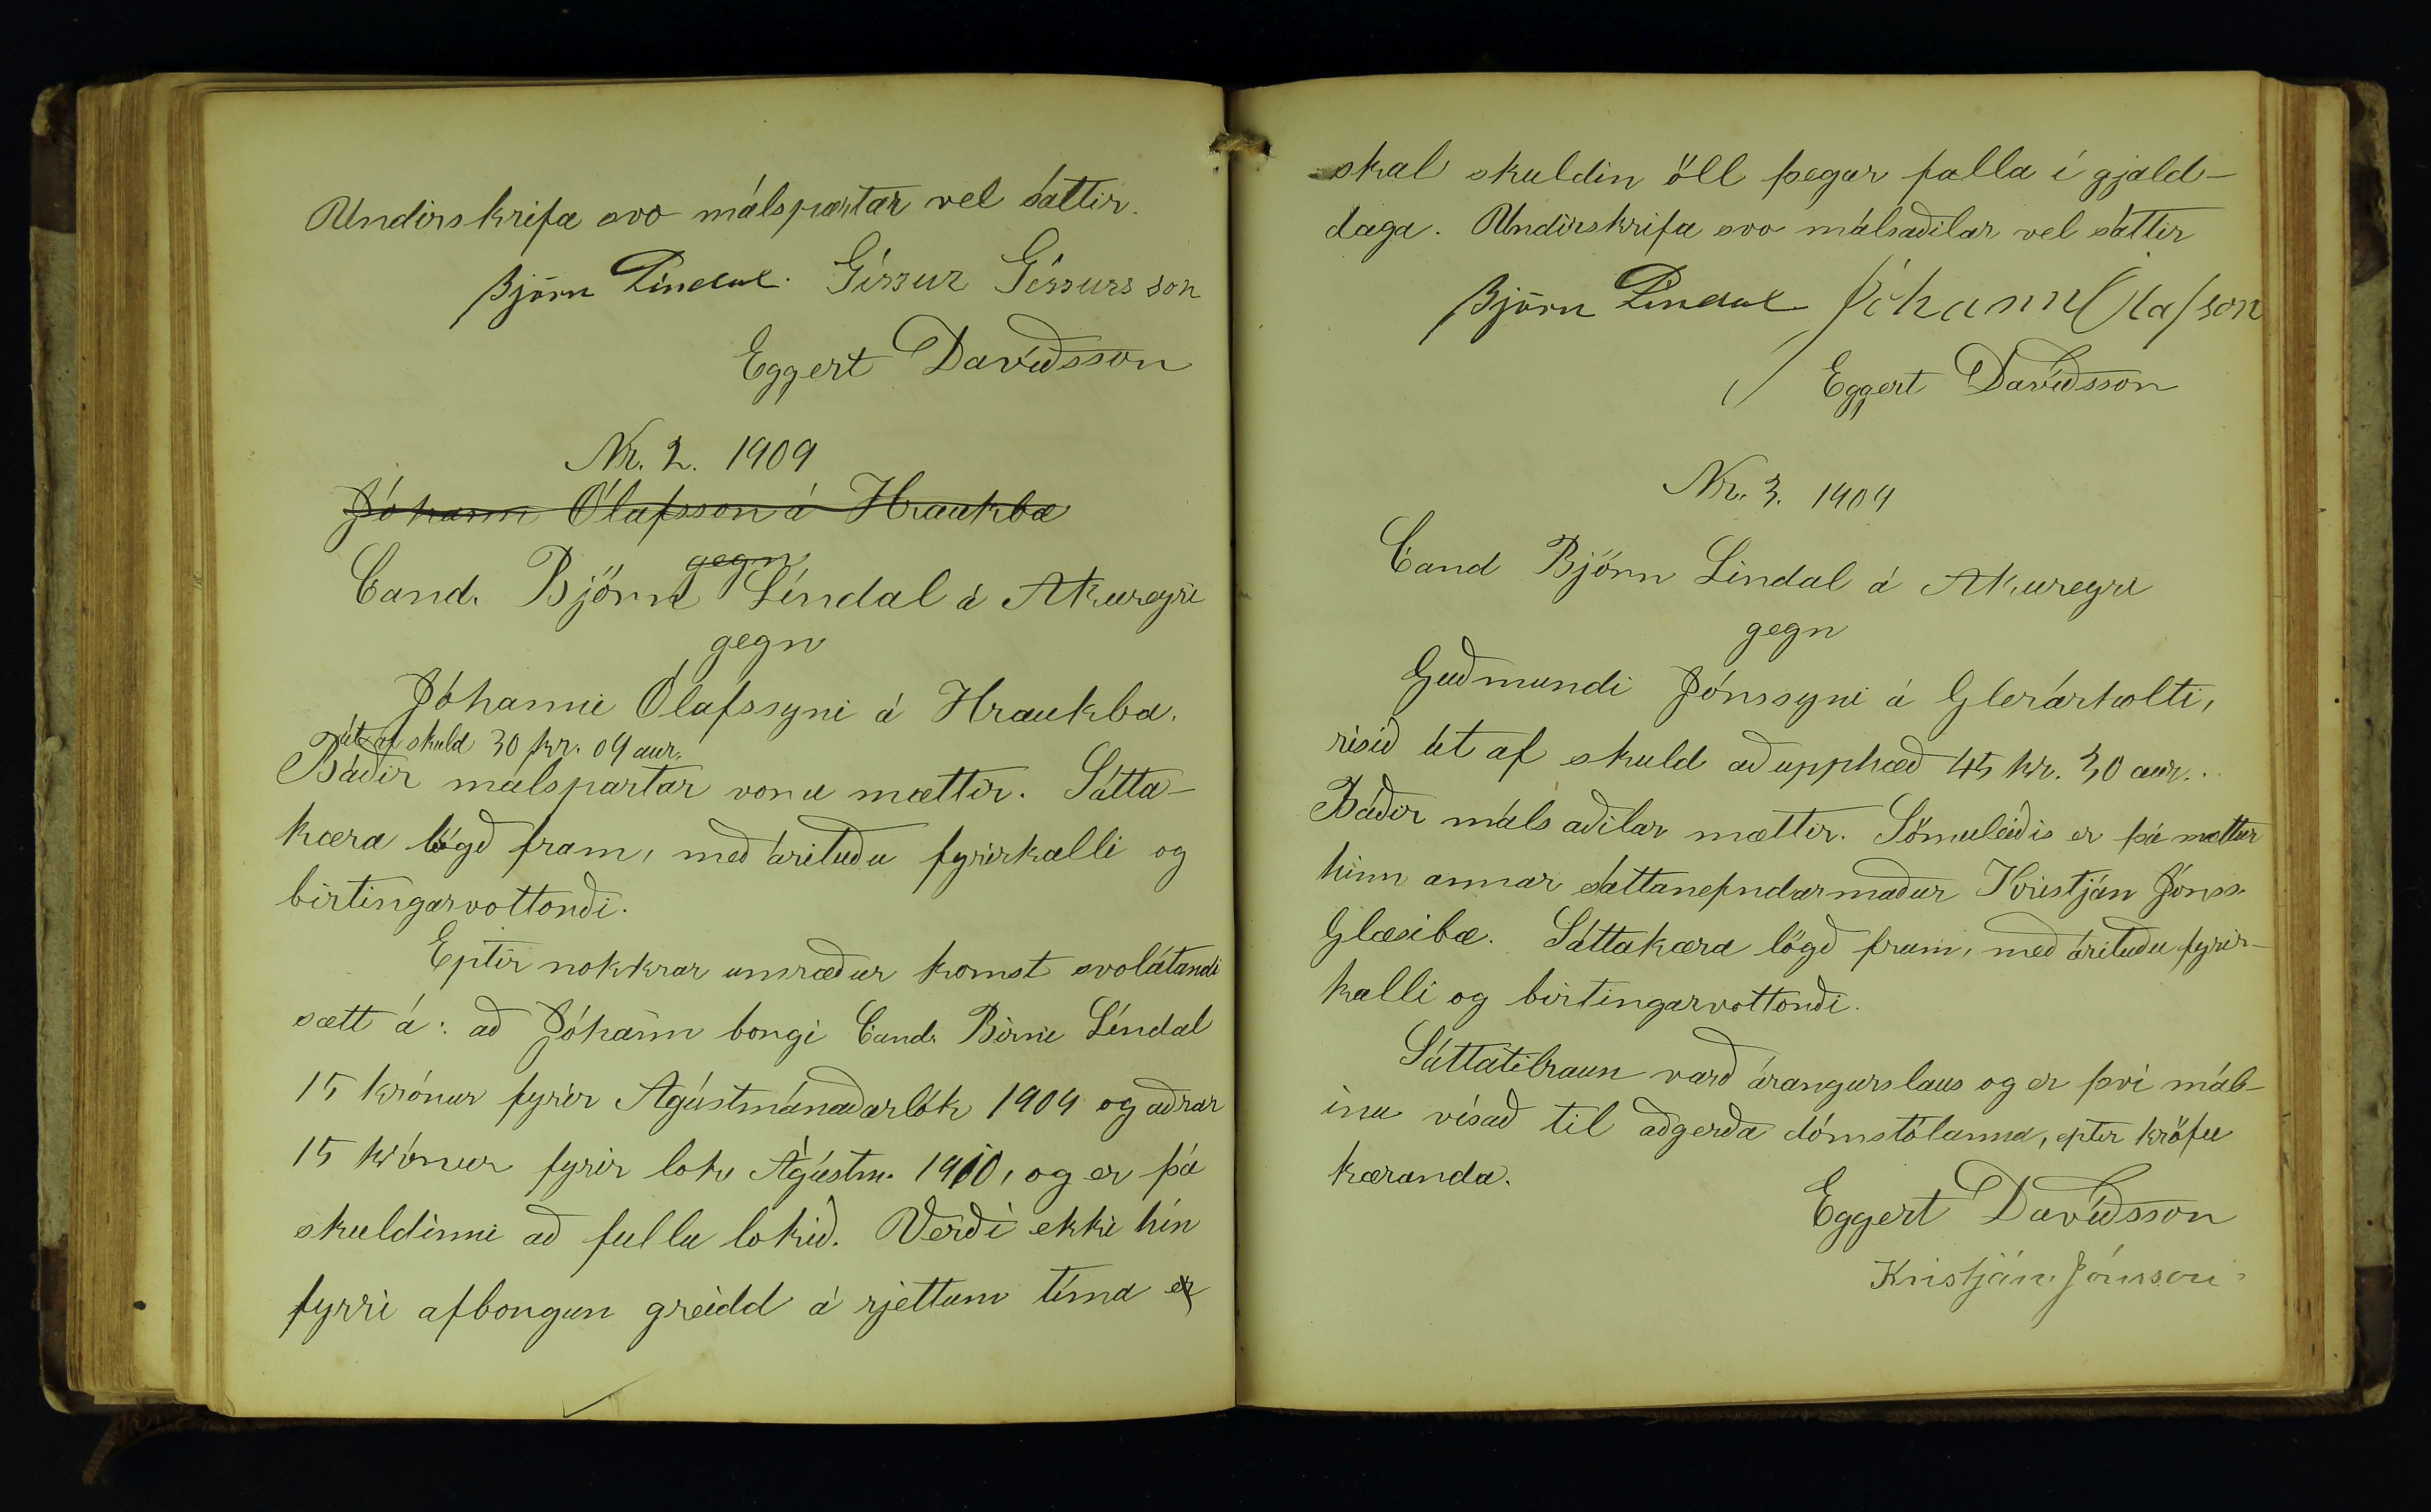 Undirskrifa svo málspartar vel sáttir.
Björn Líndal. Gissur Gissursson
Eggert Davíðsson
Nr. 2. 1909
Jóhann Ólafsson á Hraukbæ
gegn
Cand. Björn Líndal á Akureyri
gegn
Jóhanni Ólafssyni á Hraukbæ.
út af skuld 30 kr. 09 aur.
Báðir málspartar voru mættir. Sátta-
kæra lögð fram, með árituðu fyrirkalli og
birtingarvottorði.
Eptir nokkrar umræður komst svolátandi
sætt á: að Jóhann borgi Cand. Birni Líndal
15 krónur fyrir Agústmánaðarlok 1909 og aðrar
15 krónur fyrir lok Ágústm. 1910, og er þá
skuldinni að fullu lokið. Verði ekki hin
fyrri afborgun greidd á rjettum tíma er
skal skuldin öll þegar falla í gjald-
daga. Undirskrifa svo málsaðilar vel sáttir
Björn Líndal Jóhann Olafsson
Eggert Davíðsson
Nr. 3. 1909
Cand Björn Líndal á Akureyri
gegn
Guðmundi Jónssyni á Glerárholti,
risið út af skuld að upphæð 45 kr. 30 aur..
Báðir máls aðilar mættir. Sömuleiðis er þá mættur
hinn annar sáttanefndarmaður Kristján Jónss.
Glæsibæ. Sáttakæra lögð fram, með árituðu fyrir-
kalli og birtingarvottorði.
Sáttatilraun varð árangurslaus og er því mál-
inu vísað til aðgerða dómstólanna, eptir kröfu
kæranda.
Eggert Davíðsson
Kristján Jónsson